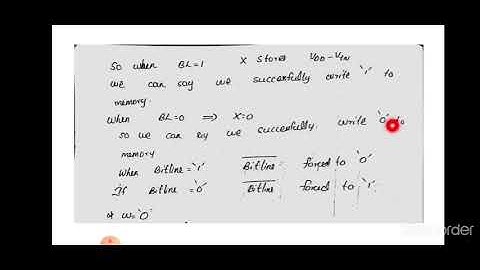 So when BL=1 X stores VDD-Vtn
we can say we succerfully write '1' to
memory.
when BL=0 ⟹ X=0
so we can say we succerfully write '0' to
memory
when Bitline='1' Bitline forced to '0'
If Bitline='0' Bitline forced to '1'
W='0'
order